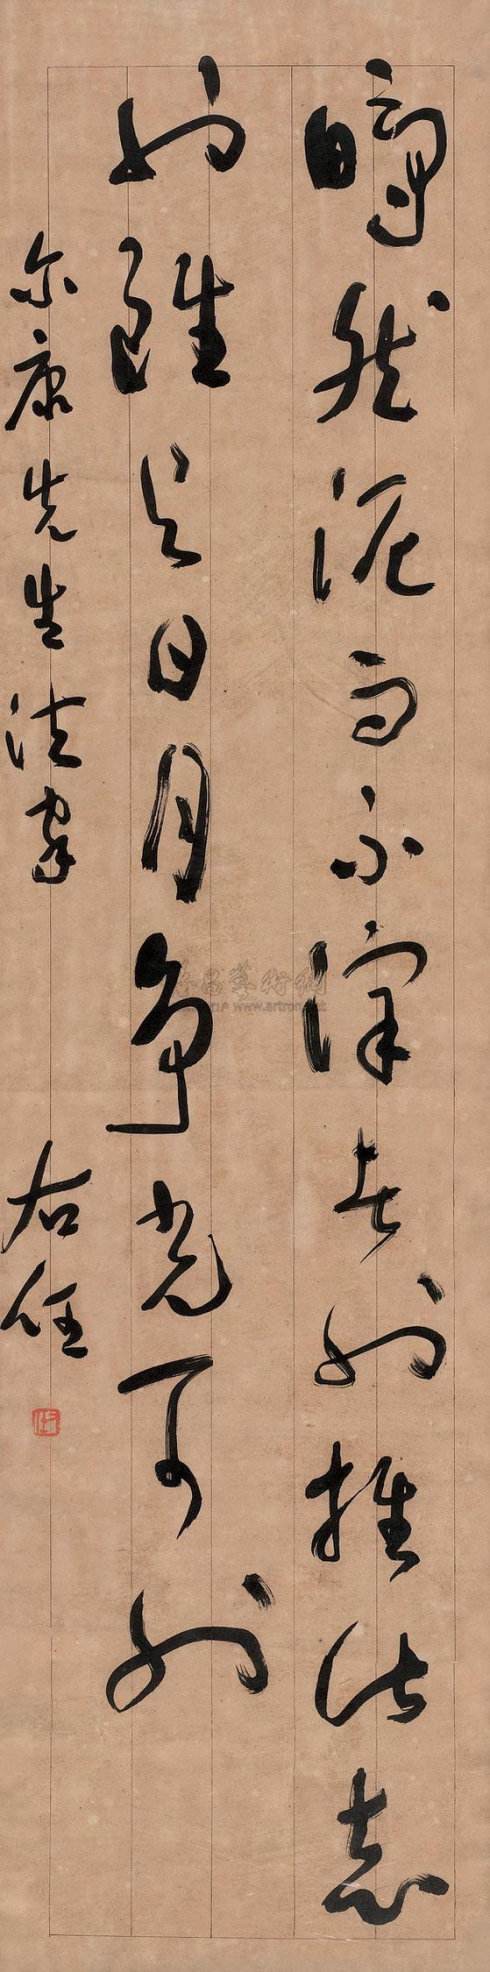 皭然泥而不滓者也推此志
也虽与日月争光可也
尔康先生法家
右任
www.artron.net